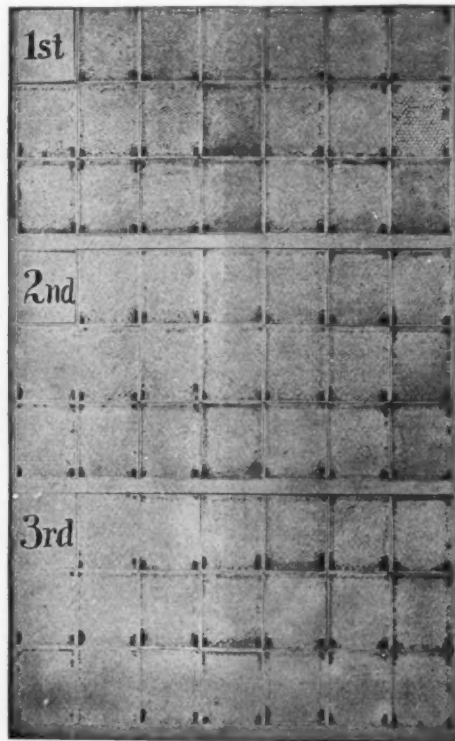 1st
2nd
3rd